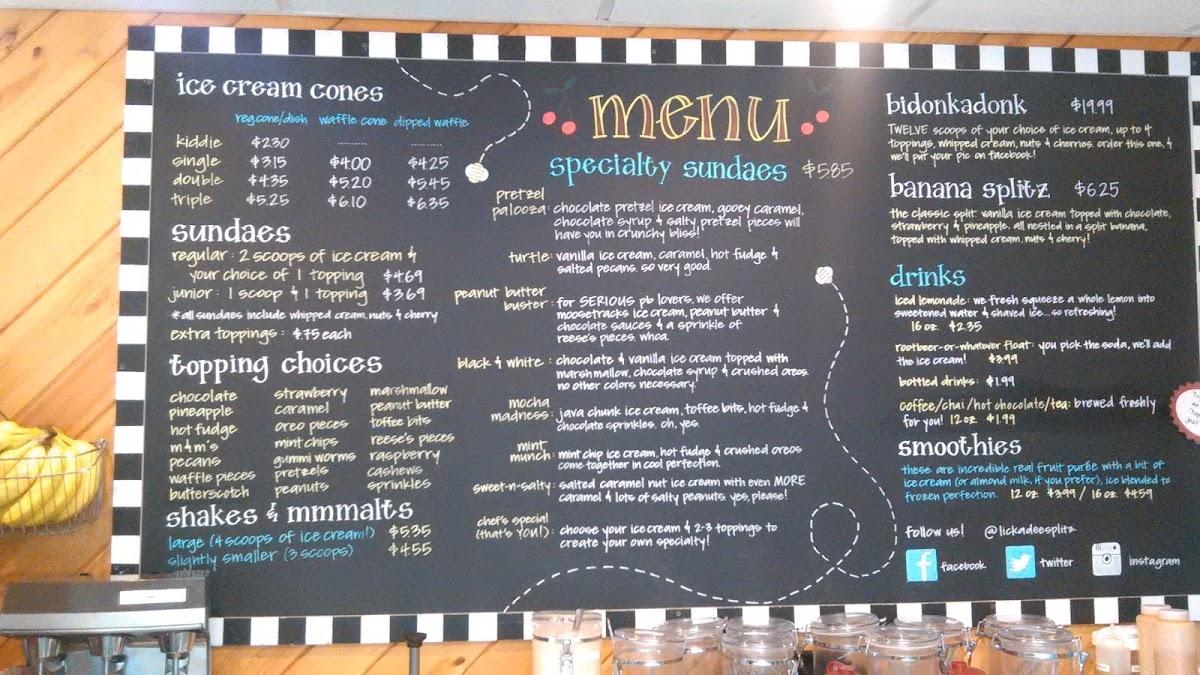 ice cream cones
reg.cone/dish waffle cone dipped waffle
kiddie $2.30 ........ ........
single $3.15 $4.00 $4.25
double $4.35 $5.20 $5.45
triple $5.25 $6.10 $6.35
sundaes
regular: 2 scoops of ice cream &
your choice of 1 topping $4.69
junior: 1 scoop & 1 topping $3.69
*all sundaes include whipped cream, nuts & cherry
extra toppings: $.75 each
topping choices
chocolate strawberry marshmallow
pineapple caramel peanut butter
hot fudge oreo pieces toffee bits
m&m's mint chips reese's pieces
pecans gummi worms raspberry
waffle pieces pretzels cashews
butterscotch peanuts sprinkles
shakes & mmmalts
large (4 scoops of ice cream!) $5.35
slightly smaller (3 scoops) $4.55
menu
specialty sundaes $5.85
pretzel
palooza: chocolate pretzel ice cream, gooey caramel,
chocolate syrup & salty pretzel pieces will
have you in crunchy bliss!
turtle: vanilla ice cream, caramel, hot fudge &
salted pecans. so very good.
peanut butter
buster: for SERIOUS pb lovers, we offer
moosetracks ice cream, peanut butter &
chocolate sauces & a sprinkle of
reese's pieces. whoa.
black & white: chocolate & vanilla ice cream topped with
marshmallow, chocolate syrup & crushed oreos.
no other colors necessary!
mocha
madness: java chunk ice cream, toffee bits, hot fudge &
chocolate sprinkles. oh, yes.
mint
munch: mint chip ice cream, hot fudge & crushed oreos
come together in cool perfection.
sweet-n-salty: salted caramel nut ice cream with even MORE
caramel & lots of salty peanuts. yes, please!
chef's special
(that's YOU!): choose your ice cream & 2-3 toppings to
create your own specialty!
bidonkadonk $19.99
TWELVE scoops of your choice of ice cream, up to 4
toppings, whipped cream, nuts & cherries. order this one, &
we'll put your pic on facebook!
banana splitz $6.25
the classic split: vanilla ice cream topped with chocolate,
strawberry & pineapple. all nestled in a split banana,
topped with whipped cream, nuts & cherry!
drinks
iced lemonade: we fresh squeeze a whole lemon into
sweetened water & shaved ice... so refreshing!
16 oz. $2.35
rootbeer-or-whatever float: you pick the soda, we'll add
the ice cream! $3.99
bottled drinks: $1.99
coffee/chai/hot chocolate/tea: brewed freshly
for you! 12 oz. $1.99
smoothies
these are incredible real fruit purée with a bit of
ice cream (or almond milk, if you prefer), ice blended to
frozen perfection. 12 oz. $3.99 / 16 oz. $4.59
follow us! @lickadeesplitz
facebook twitter instagram